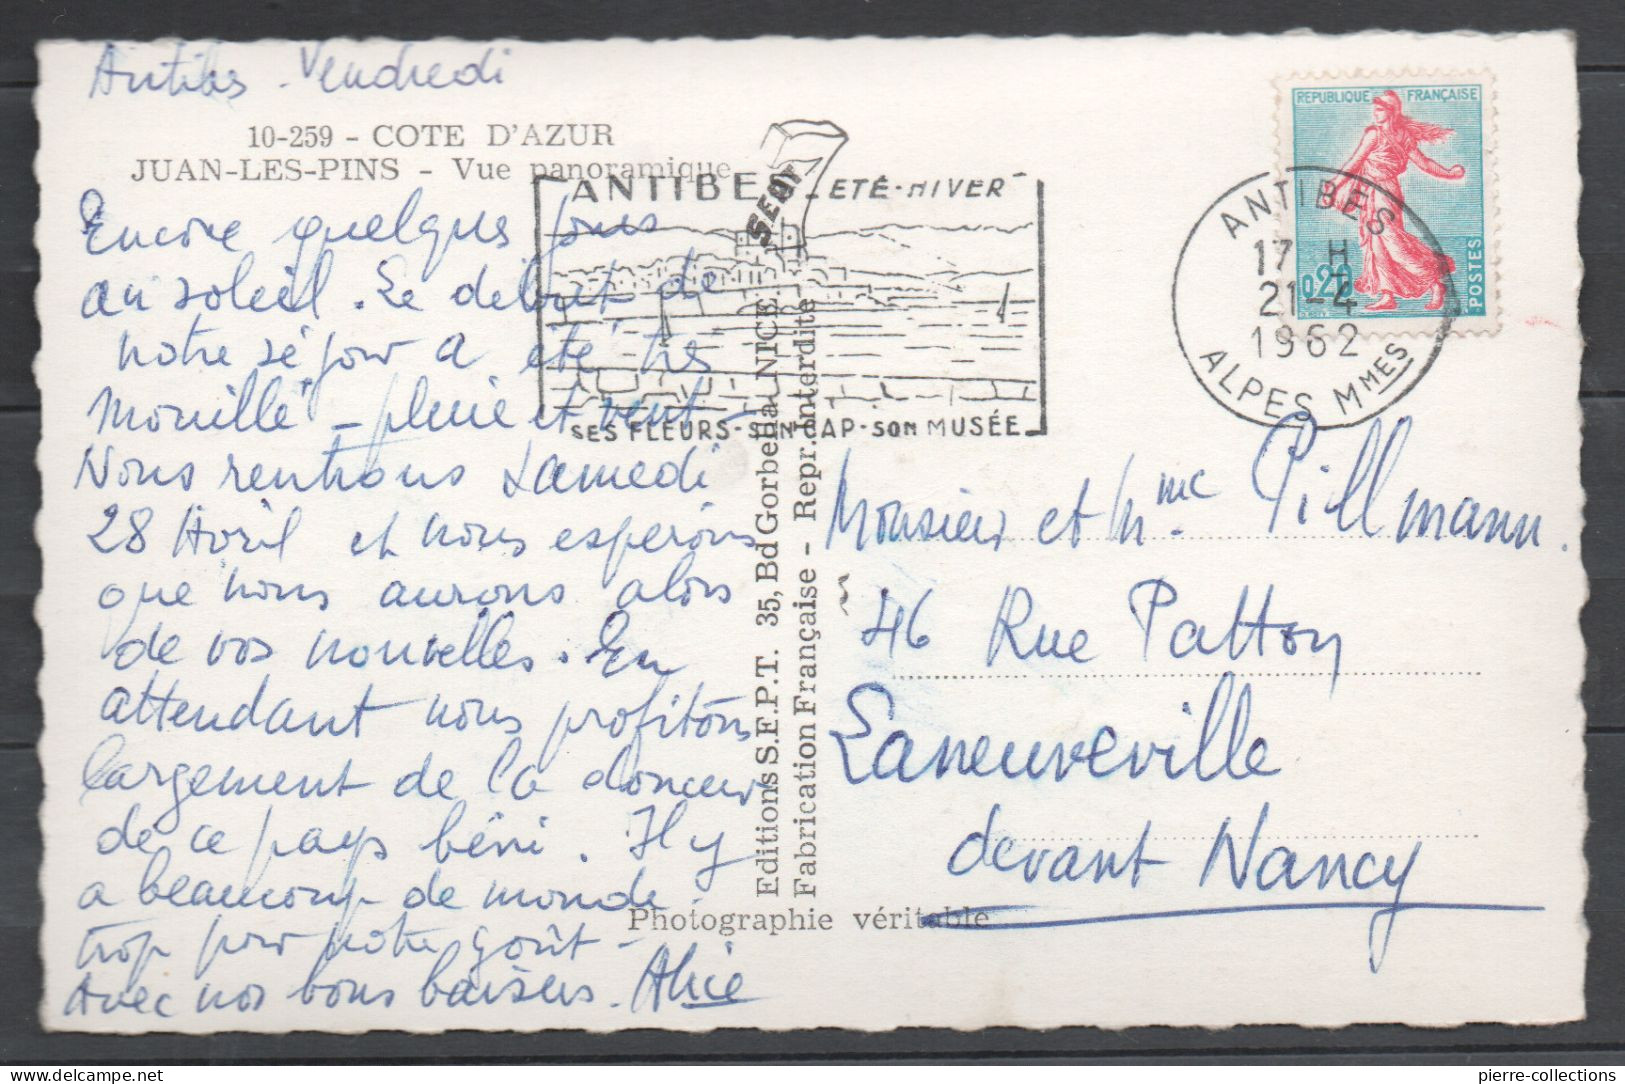 Antibes - Vendredi
10-259 - COTE D'AZUR
JUAN-LES-PINS - Vue panoramique
Encore quelques jours
au soleil. Le début de
notre séjour a été très
"mouillé" - pluie et vent -
Nous rentrons Samedi
28 Avril et nous espérons
que nous aurons alors
de vos nouvelles. En
attendant nous profitons
largement de la douceur
de ce pays béni. Il y
a beaucoup de monde
trop pour notre goût -
Avec nos bons baisers. Alice
ANTIBES ETÉ-HIVER
SES FLEURS-SON CAP-SON MUSÉE
Editions S.E.P.T. 35, Bd Gorbella NICE
Fabrication Française - Repr. Interdite
Photographie véritable
REPUBLIQUE FRANÇAISE
0,20
POSTES
ANTIBES
17 H
21-4
1962
ALPES Mmes
Monsieur et Mme Pillmann.
46 Rue Patton
Laneuveville
devant Nancy
pierre-collections